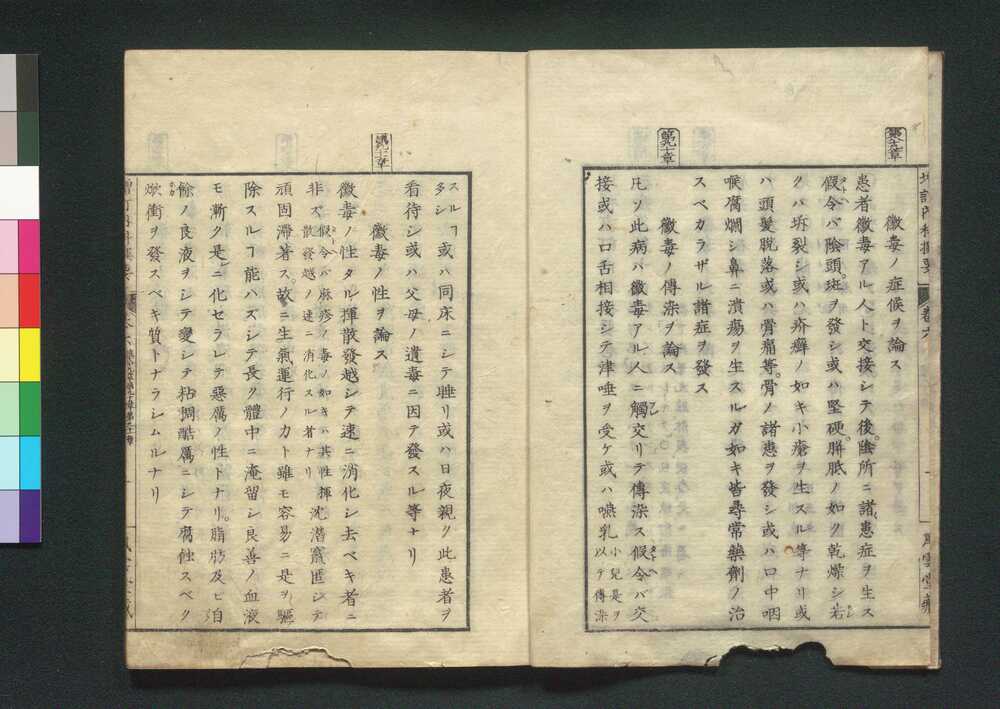 黴毒ノ症候ヲ論ス
患者黴毒アル人ト交接シテ後。陰所ニ諸患症ヲ生ス
假令バ陰頭。斑ヲ發シ或ハ堅硬。胼胝ノ如ク乾燥シ若
クハ坼裂シ或ハ疥癬ノ如キ小瘡ヲ生スル等ナリ或
ハ頭髮脱落或ハ骨痛等。骨ノ諸患ヲ發シ或ハ口中咽
喉腐爛シ鼻ニ潰瘍ヲ生スルガ如キ皆尋常藥劑ノ治
スベカラザル諸症ヲ發ス
黴毒ノ傳染ヲ論ス
凡ソ此病ハ黴毒アル人ニ觸交リテ傳染ス假令バ交
接或ハ口舌相接シテ津唾ヲ受ケ或ハ嚥乳小兒是ヲ以テ傳染
スルヿ多シ或ハ同床ニシテ睡リ或ハ日夜親ク此患者ヲ
看待シ或ハ父母ノ遺毒ニ因テ發スル等ナリ
黴毒ノ性ヲ論ス
黴毒ノ性タル揮散發越シテ速ニ消化シ去ベキ者ニ
非ズ假令バ麻疹ノ毒ノ如キハ其性揮散發越ノ速ニ消化スル者ナリ沈潜竄匿シテ
頑固滯著ス。故ニ生氣運行ノ力ト雖モ容易ニ是ヲ驅
除スルヿ能ハズシテ長ク體中ニ淹留シ良善ノ血液
モ漸ク是ニ化セラレテ惡厲ノ性トナリ。脂肪及ヒ自
餘ノ良液ヲシテ變シテ粘稠酷厲ニシテ腐蝕スベク
焮衝ヲ發スベキ質トナラシムルナリ